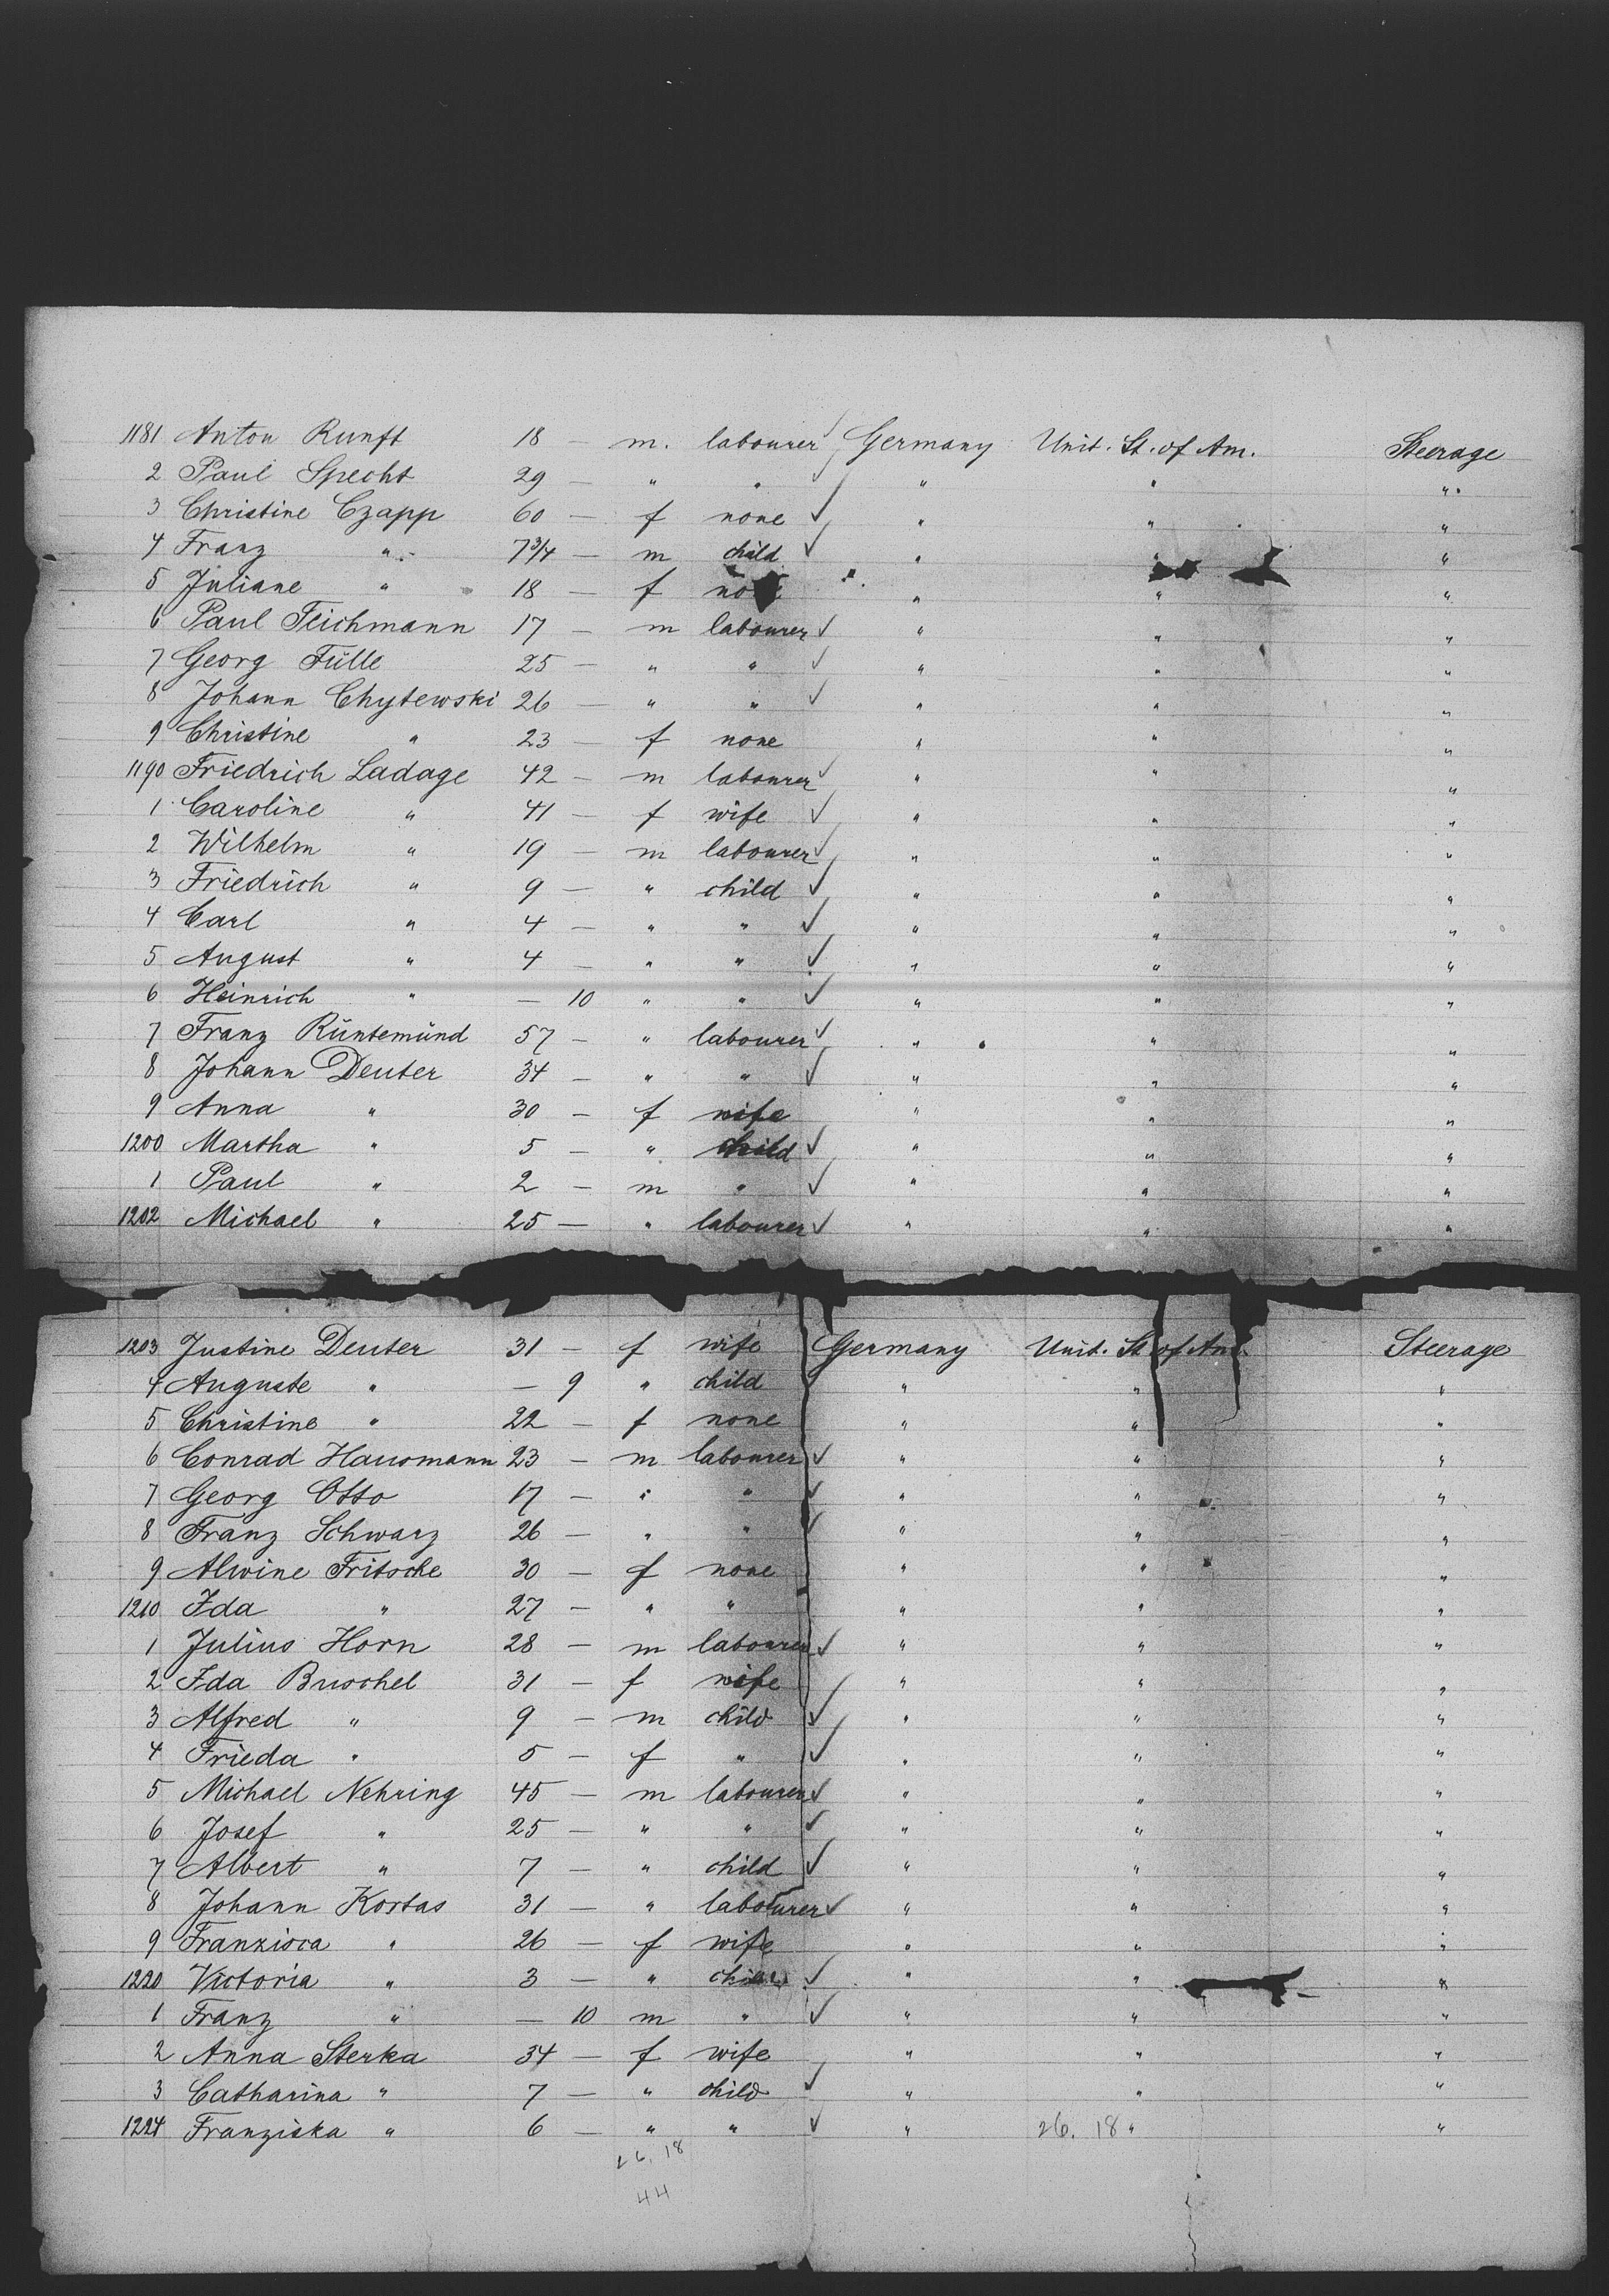 1181 Anton Runft 18 — m. labourer ✓ Germany Unit. St. of Am. Steerage
2 Paul Specht 29 — " " ✓ " " "
3 Christine Czapp 60 — f none ✓ " " "
4 Franz " 7 3/4 — m child ✓ " " "
5 Juliane " 18 — f none " " "
6 Paul Teichmann 17 — m labourer ✓ " " "
7 Georg Fülle 25 — " " ✓ " " "
8 Johann Chytewski 26 — " " ✓ " " "
9 Christine " 23 — f none " " "
1190 Friedrich Ladage 42 — m labourer ✓ " " "
1 Caroline " 41 — f wife ✓ " " "
2 Wilhelm " 19 — m labourer ✓ " " "
3 Friedrich " 9 — " child ✓ " " "
4 Carl " 4 — " " ✓ " " "
5 August " 4 — " " ✓ " " "
6 Heinrich " — 10 " " ✓ " " "
7 Franz Rüntemünd 57 — " labourer ✓ " " "
8 Johann Deuter 34 — " " ✓ " " "
9 Anna " 30 — f wife " " "
1200 Martha " 5 — " child ✓ " " "
1 Paul " 2 — m " ✓ " " "
1202 Michael " 25 — " labourer ✓ " " "
1203 Justine Deuter 31 — f wife Germany Unit. St. of Am. Steerage
4 Auguste " — 9 " child " " "
5 Christine " 22 — f none " " "
6 Conrad Hausmann 23 — m labourer ✓ " " "
7 Georg Otto 17 — " " ✓ " " "
8 Franz Schwarz 26 — " " ✓ " " "
9 Alwine Fritsche 30 — f none " " "
1210 Ida " 27 — " " " " "
1 Julius Horn 28 — m labourer ✓ " " "
2 Ida Buschel 31 — f wife " " "
3 Alfred " 9 — m child ✓ " " "
4 Frieda " 5 — f " ✓ " " "
5 Michael Nehring 45 — m labourer ✓ " " "
6 Josef " 25 — " " ✓ " " "
7 Albert " 7 — " child ✓ " " "
8 Johann Kostas 31 — " labourer ✓ " " "
9 Franzisca " 26 — f wife " " "
1220 Victoria " 3 — " child ✓ " " "
1 Franz " — 10 m " ✓ " " "
2 Anna Sterka 34 — f wife " " "
3 Catharina " 7 — " child ✓ " " "
1224 Franziska " 6 — " " ✓ " 26. 18 " "
26. 18
44